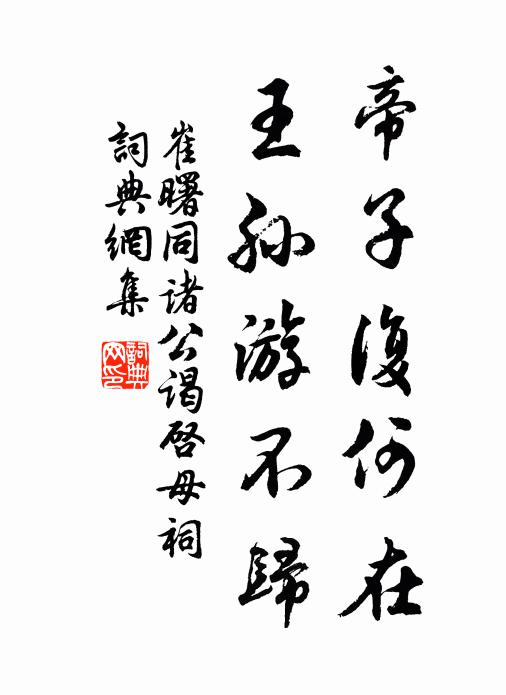 帝子復何在
王孙游不歸
崔曙同诸公谒啓母祠
詞典網集
詞典
网印